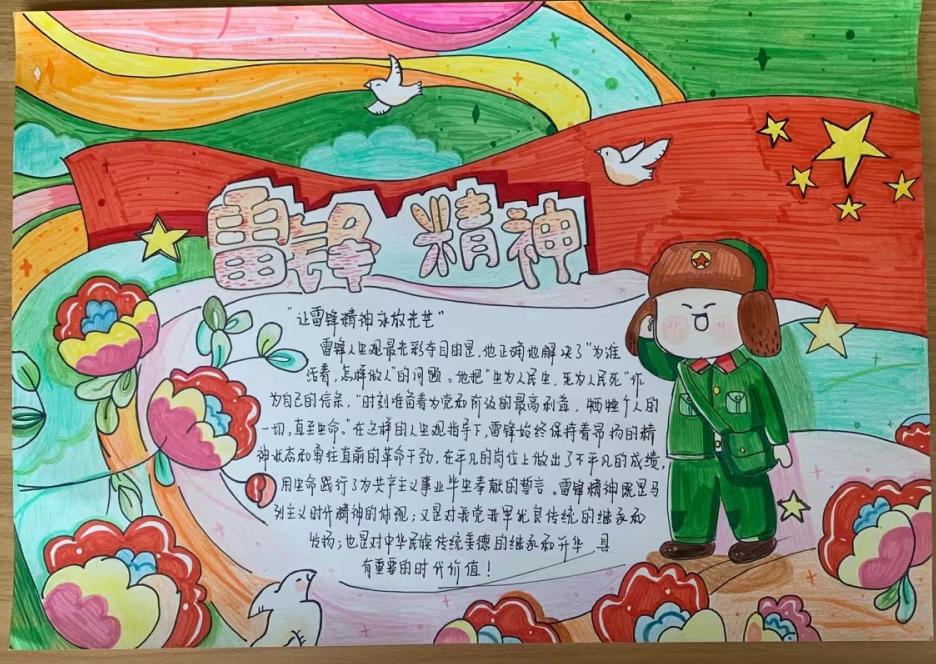 雷锋精神
"让雷锋精神永放光芒"
雷锋人生观最光彩夺目的是，他正确地解决了"为谁
活着，怎样做人"的问题。他把"生为人民生，死为人民死"作
为自己的信条，"时刻准备着为党和阶级的最高利益，牺牲个人的
一切，直至生命。"在这样的人生观指导下，雷锋始终保持着昂扬的精
神状态和勇往直前的革命干劲，在平凡的岗位上做出了不平凡的成绩，
用生命践行了为共产主义事业毕生奉献的誓言。雷锋精神既是马
列主义时代精神的体现；又是对我党我军优良传统的继承和
发扬；也是对中华民族传统美德的继承和升华，具
有重要的时代价值！